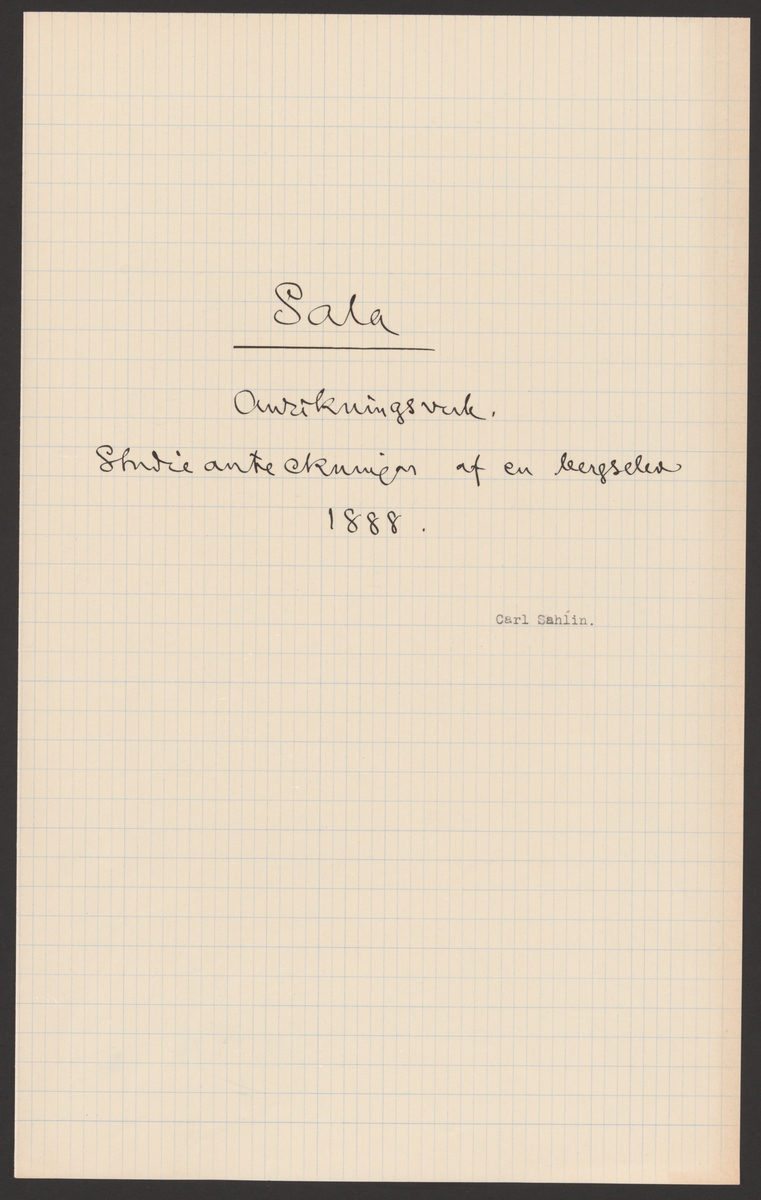 Sala
Anrikningsverk.
Studieanteckningar af en bergselev
1888.
Carl Sahlin.